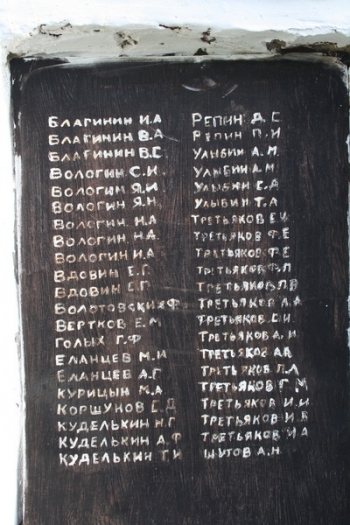 БЛАГИНИН И.А
БЛАГИНИН В.А
БЛАГИНИН В.С.
ВОЛОГИН С.И.
ВОЛОГИН Я.И.
ВОЛОГИН Я.Н.
ВОЛОГИН Н.А
ВОЛОГИН Н.А.
ВОЛОГИН И.А
ВДОВИН Е.Г.
ВДОВИН Е.Г.
БОЛОТОВСКИХ Ф.
ВЕРТКОВ Е.М
ГОЛЫХ Г.Ф
ЕЛАНЦЕВ М.И
ЕЛАНЦЕВ А.Г
КУРИЦЫН М.А
КОРШУНОВ С.Д
КУДЕЛЬКИН Н.Г
КУДЕЛЬКИН А.Ф
КУДЕЛЬКИН Т.И
РЕПИН Д.С.
РЕПИН П.И
УЛЫБИН А.М.
УЛЫБИН А.М.
УЛЫБИН С.Д
УЛЫБИН Т.А
ТРЕТЬЯКОВ Е.И.
ТРЕТЬЯКОВ Ф.Е
ТРЕТЬЯКОВ Ф.Е
ТРЕТЬЯКОВ Ф.П
ТРЕТЬЯКОВ П.В
ТРЕТЬЯКОВ Л.А
ТРЕТЬЯКОВ С.И.
ТРЕТЬЯКОВ А.И
ТРЕТЬЯКОВ А.А
ТРЕТЬЯКОВ П.А
ТРЕТЬЯКОВ Г.М
ТРЕТЬЯКОВ И.В
ТРЕТЬЯКОВ И.А
ШУТОВ А.Н.